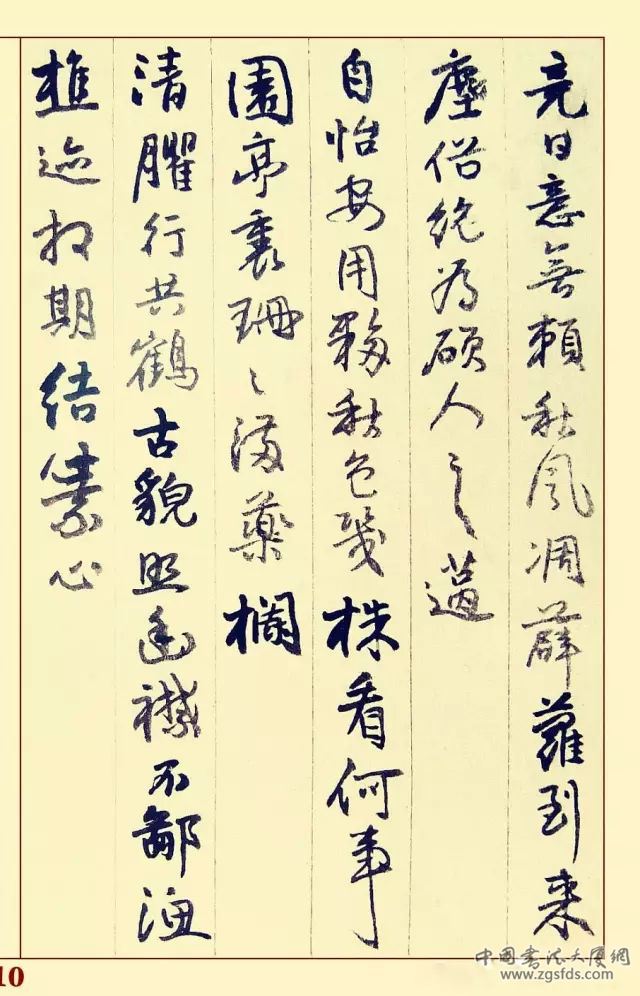 竟日意無賴秋風凋薜蘿到来
塵俗絶為碩人之薖
自怡安用夥秋色幾株看何事
園亭裏珊〻滿藥欄
清臞行共鶴古貌照幽襟不鄙漁
樵迹相期結素心
10
中国書法大厦網
www.zgsfds.com